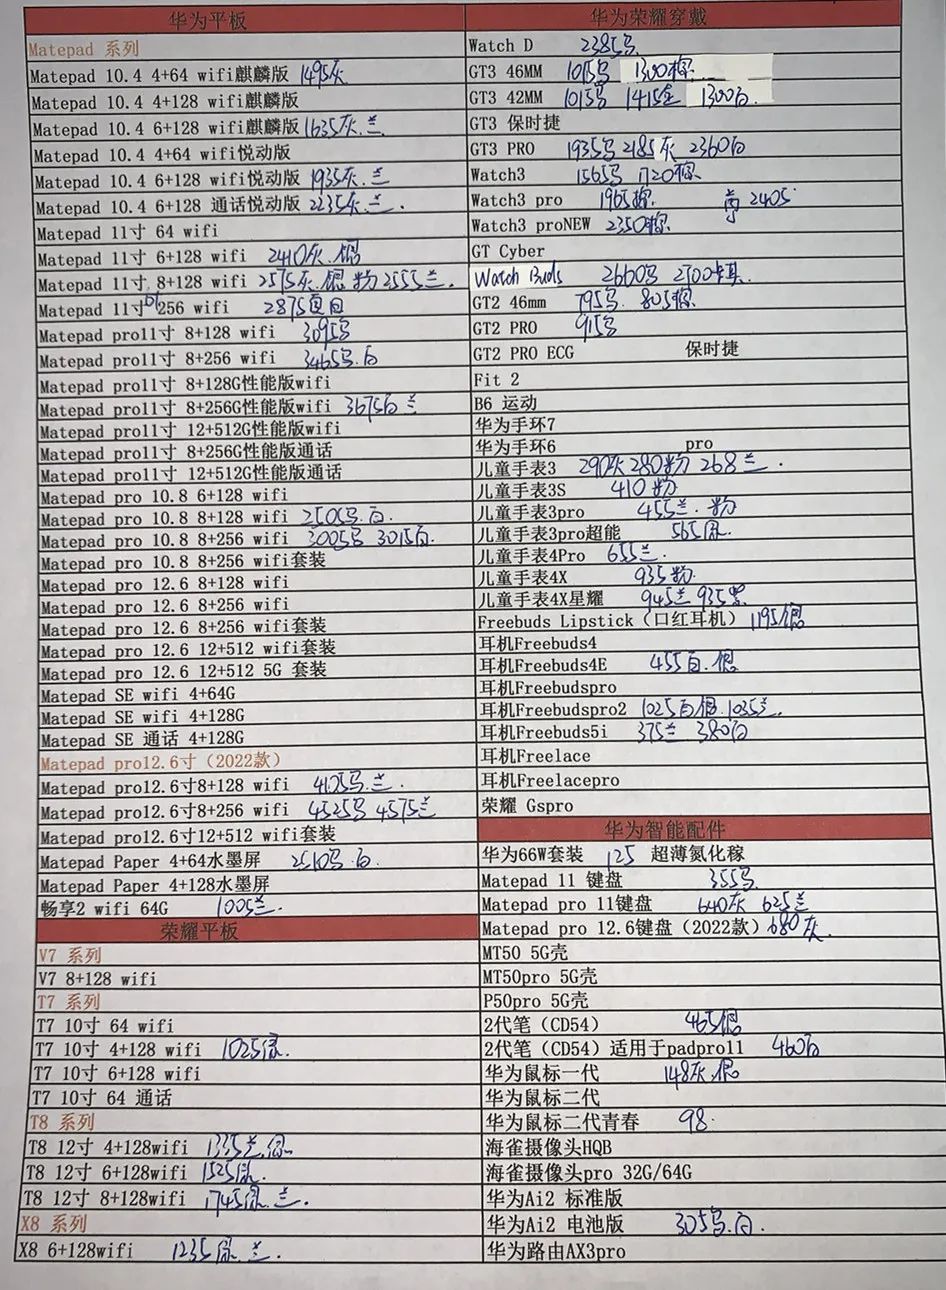 华为平板
Matepad 系列
Matepad 10.4 4+64 wifi麒麟版 1495灰
Matepad 10.4 4+128 wifi麒麟版
Matepad 10.4 6+128 wifi麒麟版 1635灰.兰
Matepad 10.4 4+64 wifi悦动版
Matepad 10.4 6+128 wifi悦动版 1935灰.兰
Matepad 10.4 6+128 通话悦动版 2235灰.兰.
Matepad 11寸 64 wifi
Matepad 11寸 6+128 wifi 2410灰.银
Matepad 11寸 8+128 wifi 2575灰.银 粉 2555兰.
Matepad 11寸 256 wifi 2875
Matepad pro11寸 8+128 wifi 3095
Matepad pro11寸 8+256 wifi 3465 白
Matepad pro11寸 8+128G性能版wifi
Matepad pro11寸 8+256G性能版wifi 3675白 兰
Matepad pro11寸 12+512G性能版wifi
Matepad pro11寸 8+256G性能版通话
Matepad pro11寸 12+512G性能版通话
Matepad pro 10.8 6+128 wifi
Matepad pro 10.8 8+128 wifi 白.
Matepad pro 10.8 8+256 wifi 3005 3015白.
Matepad pro 10.8 8+256 wifi套装
Matepad pro 12.6 8+128 wifi
Matepad pro 12.6 8+256 wifi
Matepad pro 12.6 8+256 wifi套装
Matepad pro 12.6 12+512 wifi套装
Matepad pro 12.6 12+512 5G 套装
Matepad SE wifi 4+64G
Matepad SE wifi 4+128G
Matepad SE 通话 4+128G
Matepad pro12.6寸（2022款）
Matepad pro12.6寸8+128 wifi 兰.
Matepad pro12.6寸8+256 wifi 4525 4575兰
Matepad pro12.6寸12+512 wifi套装
Matepad Paper 4+64水墨屏 白.
Matepad Paper 4+128水墨屏
畅享2 wifi 64G 1005兰.
荣耀平板
V7 系列
V7 8+128 wifi
T7 系列
T7 10寸 64 wifi
T7 10寸 4+128 wifi 1025
T7 10寸 6+128 wifi
T7 10寸 64 通话
T8 系列
T8 12寸 4+128wifi 1335兰
T8 12寸 6+128wifi 1525
T8 12寸 8+128wifi 1745 兰.
X8 系列
X8 6+128wifi 1235 兰.
华为荣耀穿戴
Watch D 2385
GT3 46MM 1015 1300
GT3 42MM 1015 1415金 1300白.
GT3 保时捷
GT3 PRO 1935 2185灰 2360白
Watch3 1565 1720棕
Watch3 pro 1965棕 2405
Watch3 proNEW 2350棕
GT Cyber
Watch Buds 2660 2700
GT2 46mm 795 805棕
GT2 PRO 915
GT2 PRO ECG 保时捷
Fit 2
B6 运动
华为手环7
华为手环6 pro
儿童手表3 290灰 280粉 268兰.
儿童手表3S 410粉
儿童手表3pro 455兰.粉
儿童手表3pro超能 565
儿童手表4Pro 655兰.
儿童手表4X 935粉.
儿童手表4X星耀 945兰 935
Freebuds Lipstick（口红耳机） 1195银
耳机Freebuds4
耳机Freebuds4E 455白.银
耳机Freebudspro
耳机Freebudspro2 1025白银.1035兰.
耳机Freebuds5i 375兰 380白
耳机Freelace
耳机Freelacepro
荣耀 Gspro
华为智能配件
华为66W套装 125 超薄氮化稼
Matepad 11 键盘 355
Matepad pro 11键盘 640灰 625兰
Matepad pro 12.6键盘（2022款） 680灰.
MT50 5G壳
MT50pro 5G壳
P50pro 5G壳
2代笔（CD54） 465银
2代笔（CD54）适用于padpro11 460白
华为鼠标一代 148灰.银
华为鼠标二代
华为鼠标二代青春 98.
海雀摄像头HQB
海雀摄像头pro 32G/64G
华为Ai2 标准版
华为Ai2 电池版 305 白.
华为路由AX3pro